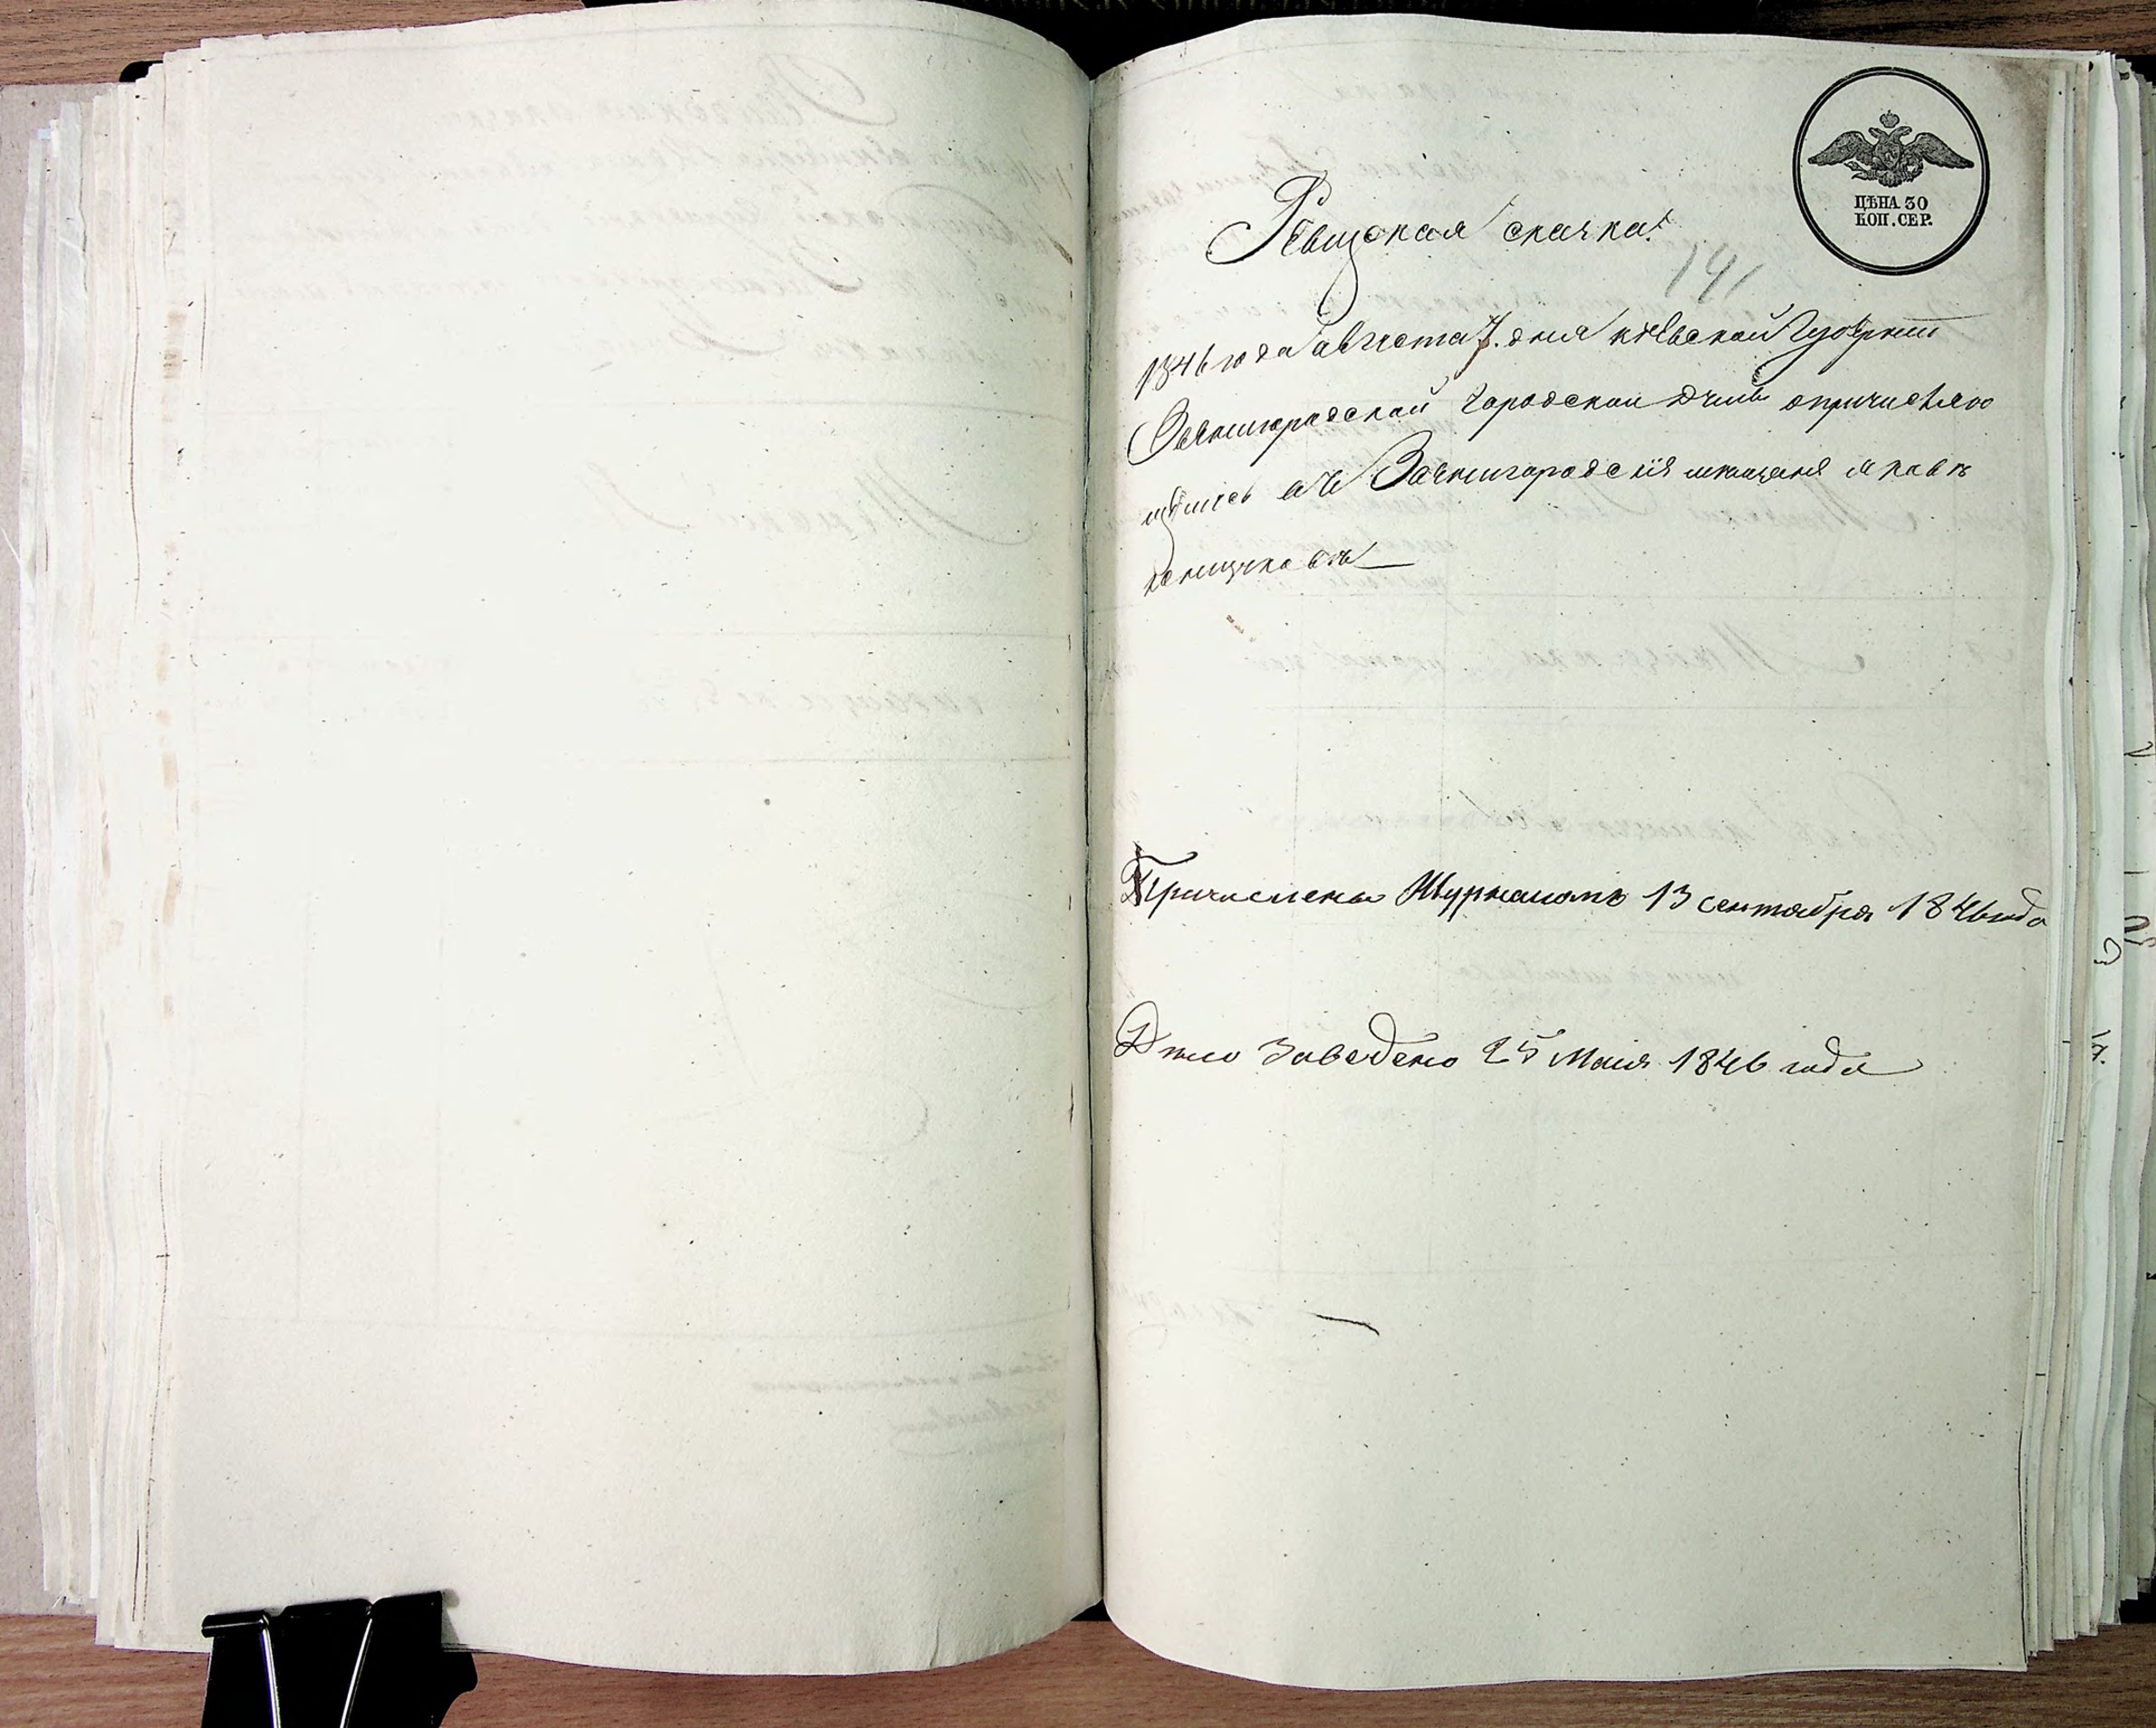 ЦѢНА 30
КОП. СЕР.
Ревизская сказка.
141
1846 года августа 7. дня кіевской Губерніи
Звенигородской городской Думы о причисляю
щихся въ Звенигородскія мещаня
Причислены Журналомъ 13 сентября 1846 года
Дело Заведено 25 Мая 1846 года